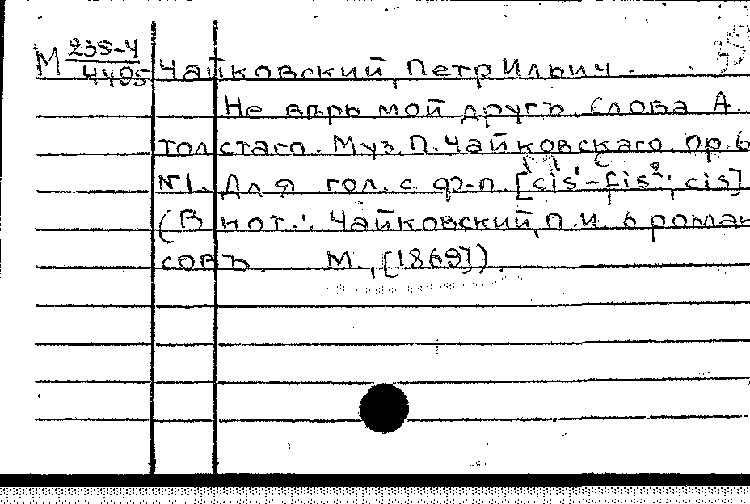 М 238-4
4495 Чайковский, Петр Ильич.
Не верь мой другъ. Слова А.
Толстаго. Муз. П. Чайковскаго. Op. 6
№1. Для гол. с ф-п. [cis¹-fis²; cis]
(В нот.: Чайковский, П.И. 6 роман
совъ. М., [1869]).